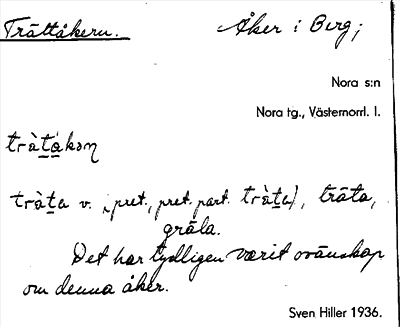 Trättåkern. Åker i Berg;
Nora s:n
Nora tg., Västernorrl. l.
tràtakon
tràta v. (pret., pret. part. tràta), träta,
gräla.
Det har tydligen varit ovänskap
om denna åker.
Sven Hiller 1936.